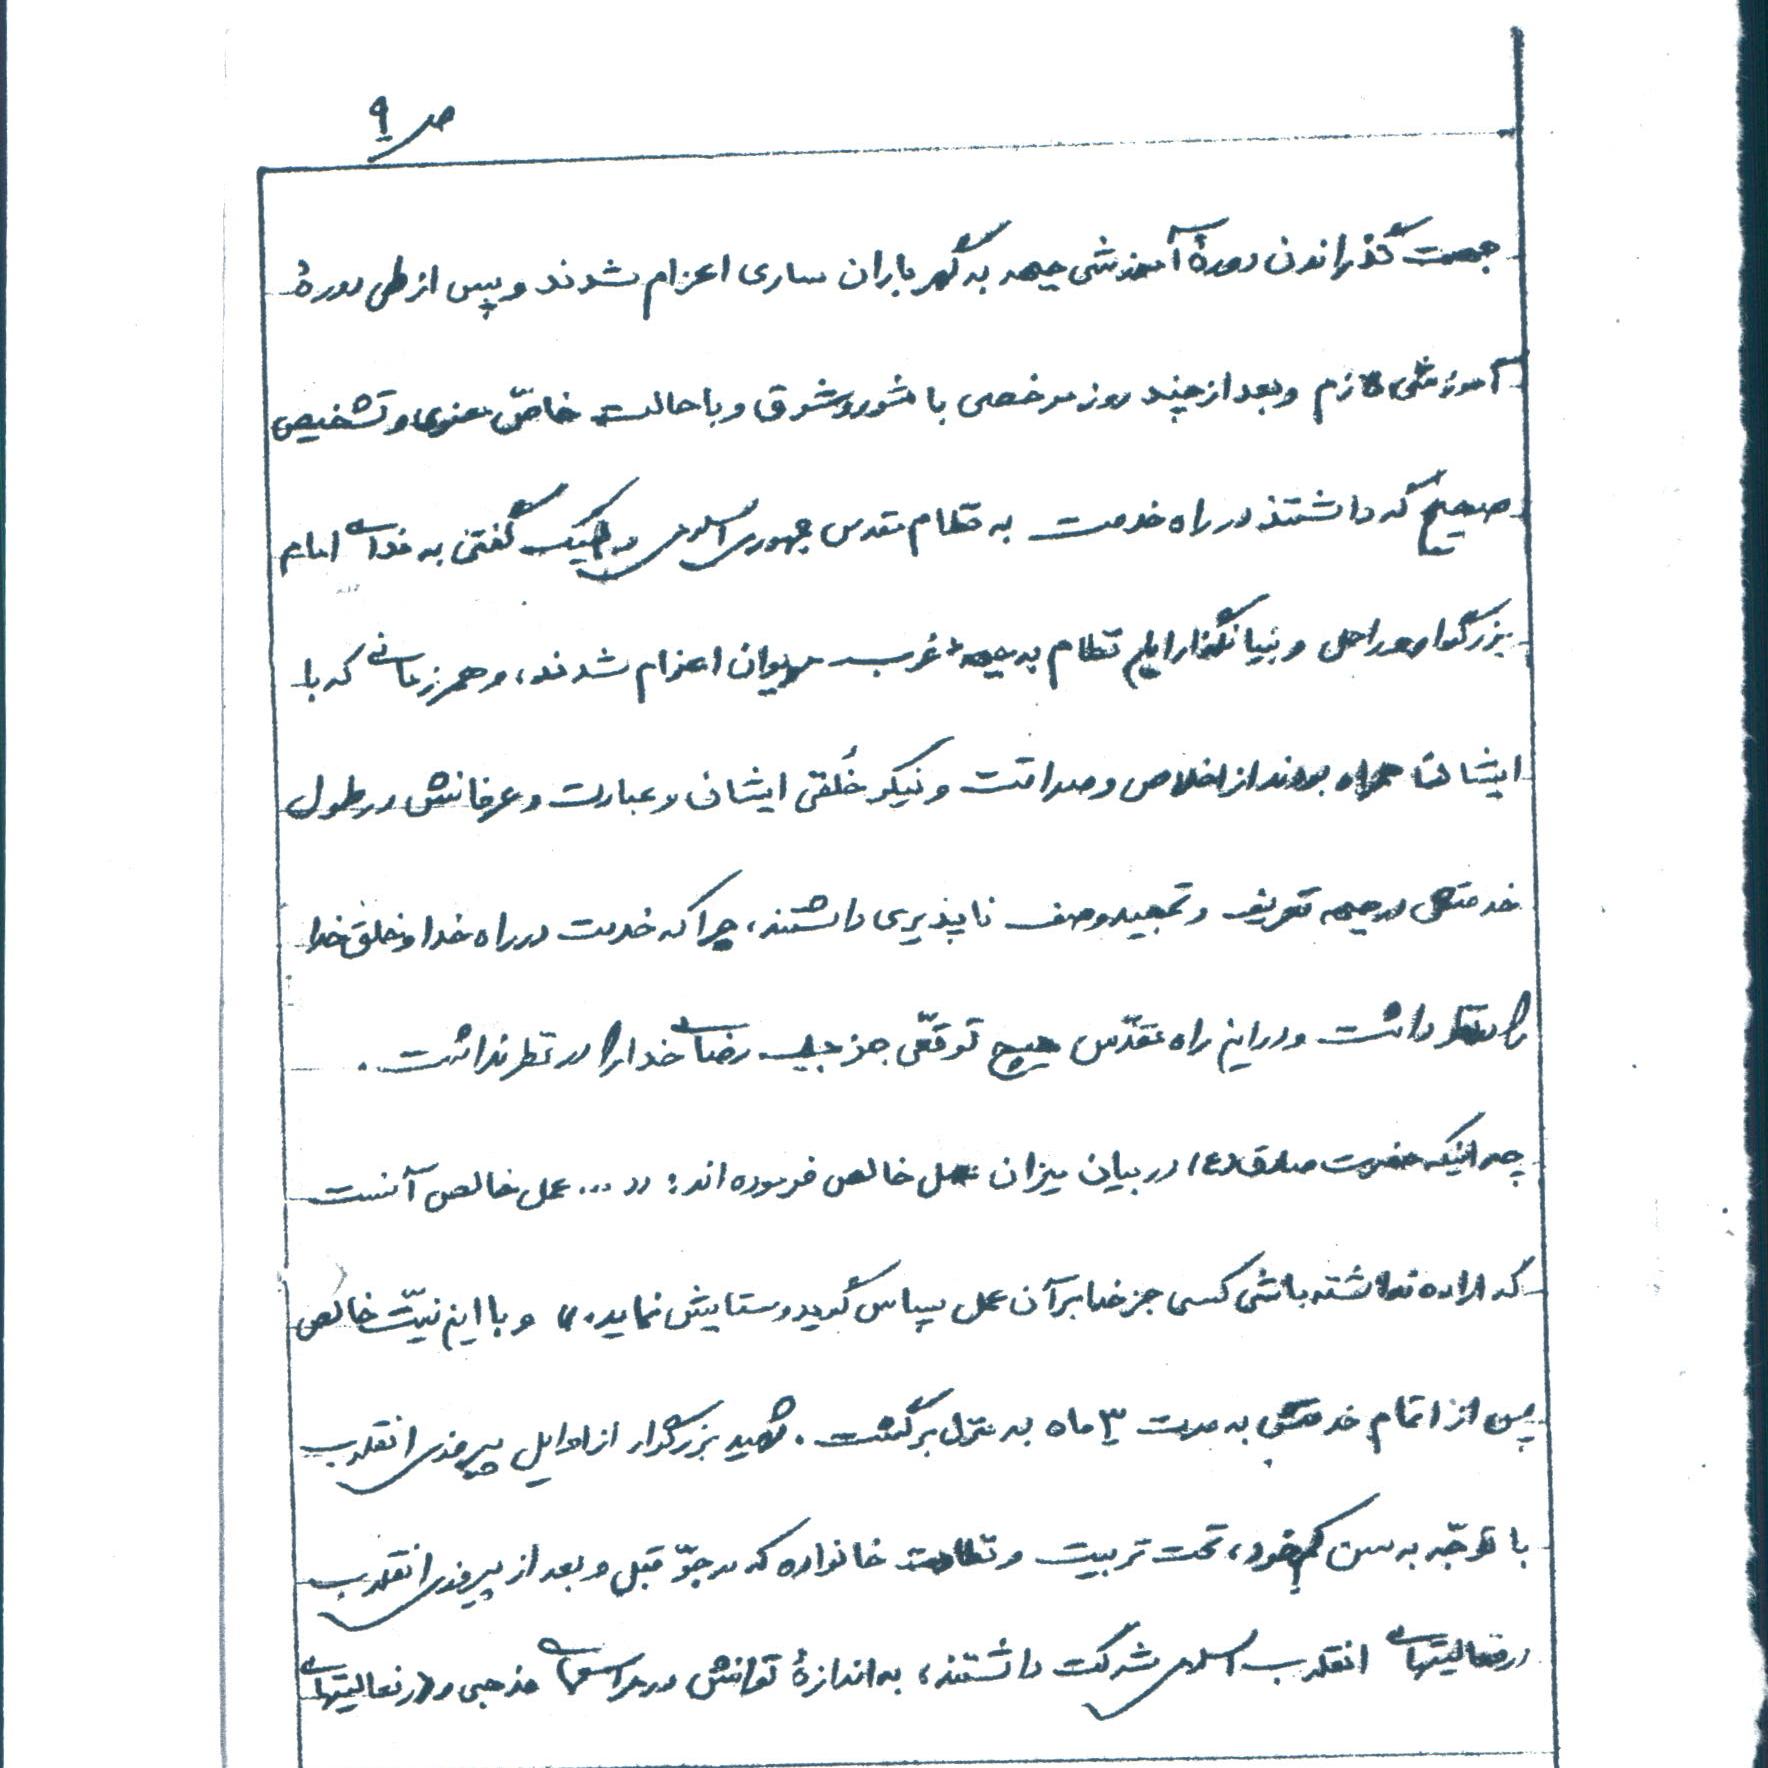 ص ۹
جهت گذراندن دورهٔ آموزشی جبهه به گهرباران ساری اعزام شدند و پس از طی دورهٔ
آموزشی لازم و بعد از چند روز مرخصی با شور و شوق و با حالت خاصّ معنوی و تشخیص
صحیح که داشتند در راه خدمت به نظام مقدس جمهوری اسلامی و لبیک گفتن به ندای امام
بزرگوار و راحل و بنیانگذار این نظام به جبههٔ غرب مریوان اعزام شدند، و همرزمانی که با
ایشان همراه بودند از اخلاص و صداقت و نیکو خُلقی ایشان و عبادت و عرفانش در طول
خدمتش در جبهه تعریف و تمجید وصف ناپذیری داشتند، چرا که خدمت در راه خدا و خلق خدا
را در نظر داشت و در این راه مقدّس هیچ توقّعی جز جلب رضای خدا را در نظر نداشت.
چه اینکه حضرت صادق(ع) در بیان میزان عمل خالص فرموده اند: «... عمل خالص آنست
که اراده نداشته باشی کسی جز خدا بر آن عمل سپاس گوید و ستایش نماید.» و با این نیّت خالص
پس از اتمام خدمتش به مدت ۳ ماه به منزل برگشت. شهید بزرگوار از اوایل پیروزی انقلاب
با توجّه به سن کم خود، تحت تربیت و نظارت خانواده که در جوّ قبل و بعد از پیروزی انقلاب
در فعالیتهای انقلاب اسلامی شرکت داشتند، به اندازهٔ توانش در مراسمهای مذهبی و در فعالیتهای